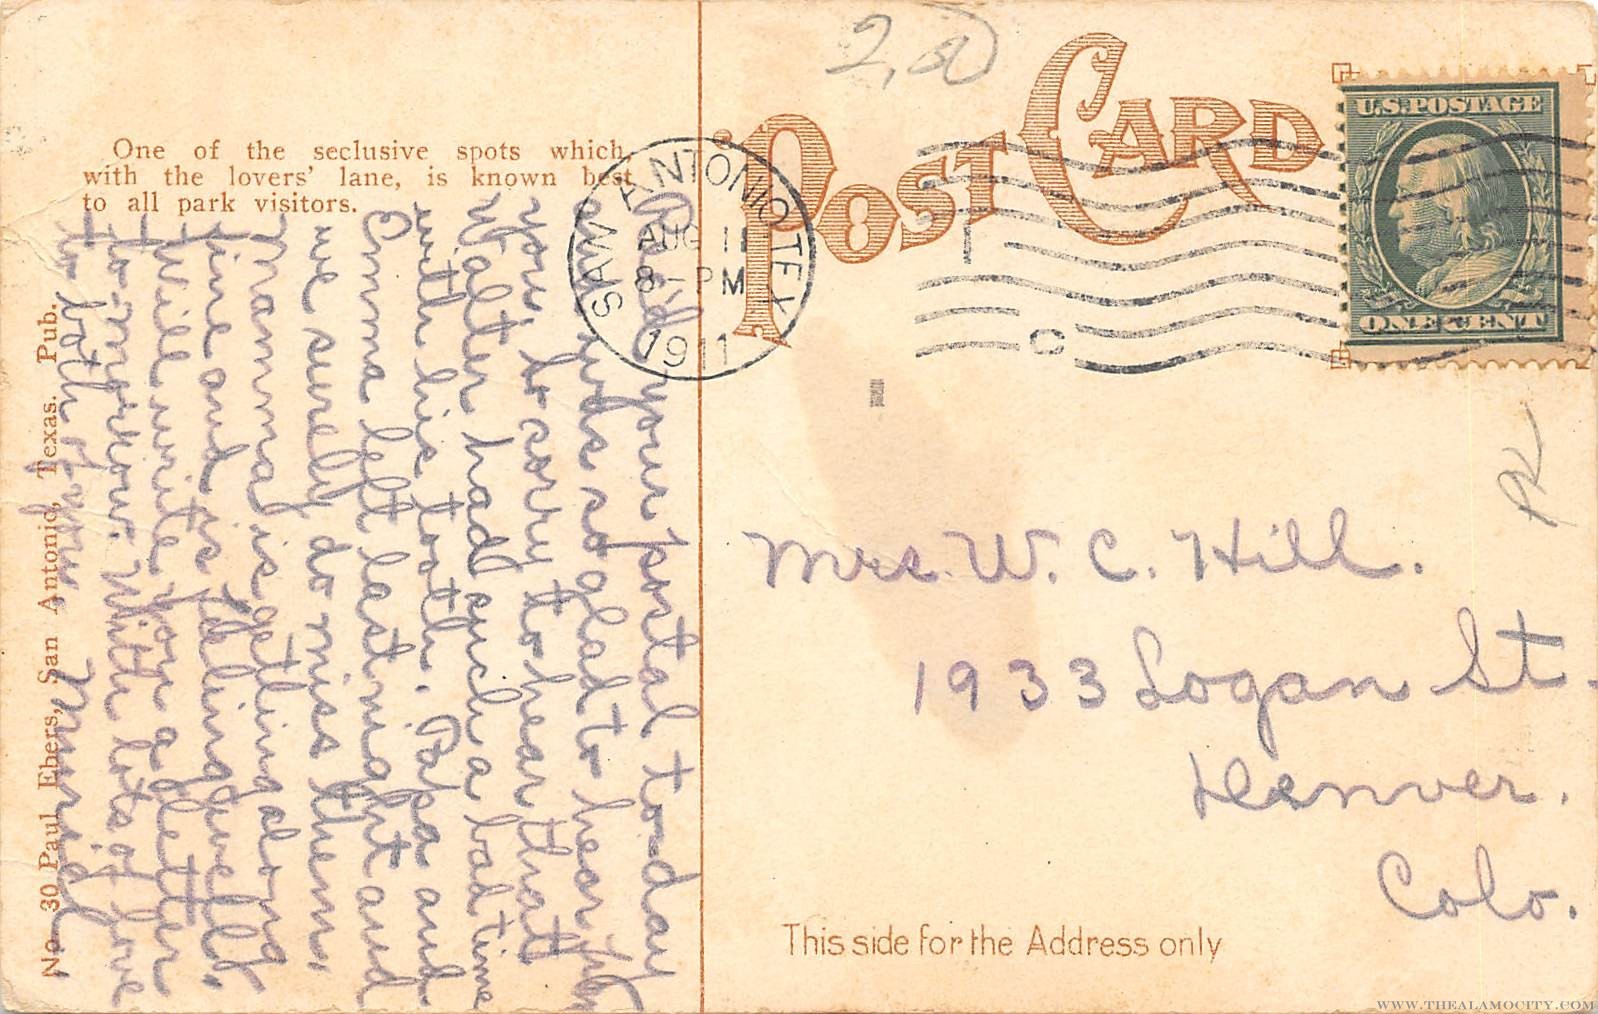 2,
POST CARD
U.S. POSTAGE
ONE CENT
SAN ANTONIO TEX.
AUG 11
8 - PM
1911
One of the seclusive spots which,
with the lovers' lane, is known best
to all park visitors.
No 30 Paul Ebers, San Antonio, Texas. Pub.
Rec'd your postal to-day
and was so glad to hear from
you, so sorry to hear that
Walter had such a bad time
with his tooth. Papa and
Emma left last night and
we surely do miss them.
Mamma is getting along
fine and is feeling well.
Will write you a letter
to-morrow. With lots of love
to both of you,
Muriel
Mrs. W. C. Hill.
1933 Logan St.
Denver.
Colo.
This side for the Address only
WWW.THEALAMOCITY.COM